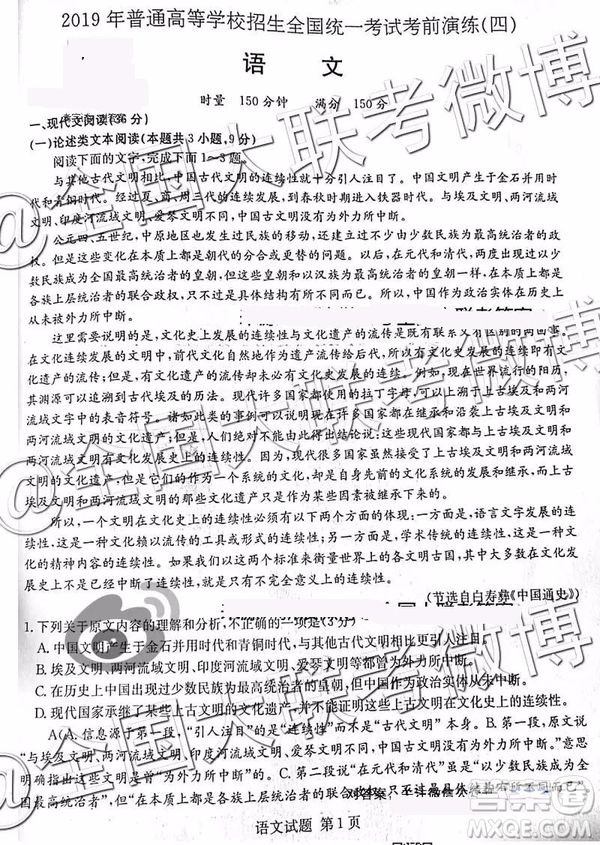 2019年普通高等学校招生全国统一考试考前演练(四)
语 文
时量 150分钟 满分 150分
一、现代文阅读(36分)
(一)论述类文本阅读(本题共3小题,9分)
阅读下面的文字,完成下面1~3题。
与其他古代文明相比,中国古代文明的连续性就十分引人注目了。中国文明产生于金石并用时
代和青铜时代。经过夏、商、周三代的连续发展,到春秋时期进入铁器时代。与埃及文明、两河流
域文明、印度河流域文明、爱琴文明不同,中国古代文明没有为外力所中断。
公元四、五世纪,中原地区也发生过民族的移动,还建立过不少由少数民族成为统治者的政
权。但是这些变化在本质上都是朝代的分合或更替的问题。所以,在元代和清代,两度出现过以
少数民族成为全国最高统治者的皇朝,但这些皇朝和以汉族为最高统治者的皇朝一样,在本质上都是
各族上层统治者的联合政权,只不过是具体结构有所不同而已。所以,中国作为政治实体在历史上
从未被外力所中断。
这里需要说明的是,文化史上发展的连续性与文化遗产的流传是既有联系又有区别的两回事。
在文化发展的连续性中,前代文化自然地作为遗产流传给后代,因此文化史发展的连续即有文
化遗产的流传;但是,有文化遗产的流传却未必有文化史发展的连续。例如,现在世界流行的阳历,
其渊源可以追溯到古代埃及的历法。现代许多国家都使用的拉丁字母,可以上溯到腓尼基和两河
流域文字中的表音符号。诸如此类的事例可以说明现在许多国家都在继承和沿袭上古埃及文明和
两河流域文明的文化遗产,但是,人们却不能说,这些现代国家的文明都与上古埃及文明、两河流域
文明有着连续性。因为,作为一个系统的文化,却是自身先前的文化系统的发展和继续,而上古
埃及文明和两河流域文明的那些文化遗产只是作为个别因素被继承下来的。
所以,一个文明在文化史上的连续性必须有以下两个方面的表现:一方面是,语言文字发展的连
续性,这是一种文化赖以流传的工具或形式的连续性;另一方面是,学术传统的连续性,这是一种文化
的精神内容的连续性。如果我们以这两个标准来衡量世界上的各文明古国,其中文化史在发
展史上不曾中断的连续性,就只有不完全意义上的连续性了。
(节选自白寿彝《中国通史》)
1.下列关于原文内容的理解和分析,不正确的一项是(3分)
A.中国文明产生于金石并用时代和青铜时代,与其他古代文明相比更引人注目。
B.埃及文明、两河流域文明、印度河流域文明、爱琴文明等文明的连续性为外力所中断。
C.在历史上中国出现过少数民族为最高统治者的皇朝,但中国作为政治实体从未中断。
D.现代国家继承了某些上古埃及文明和两河流域文明的文化遗产,但并不具有文明的连续性。
1.A(A.信息源于第一段,“引人注目”的是“连续性”而不是“古代文明”本身。B.第一段说,
“与埃及文明、两河流域文明、印度河流域文明、爱琴文明不同,中国古代文明没有为外力所中断”意思
明确指出这些文明“为外力所中断”。C.第二段说“在元代和清代,两度出现过以少数民族成为全国
最高统治者的皇朝,但……都是各族上层统治者的联合政权,只不过是具体结构有所不同而已”
语文试题 第1页
@全国大联考微博
@全国大联考微博
@全国大联考微博